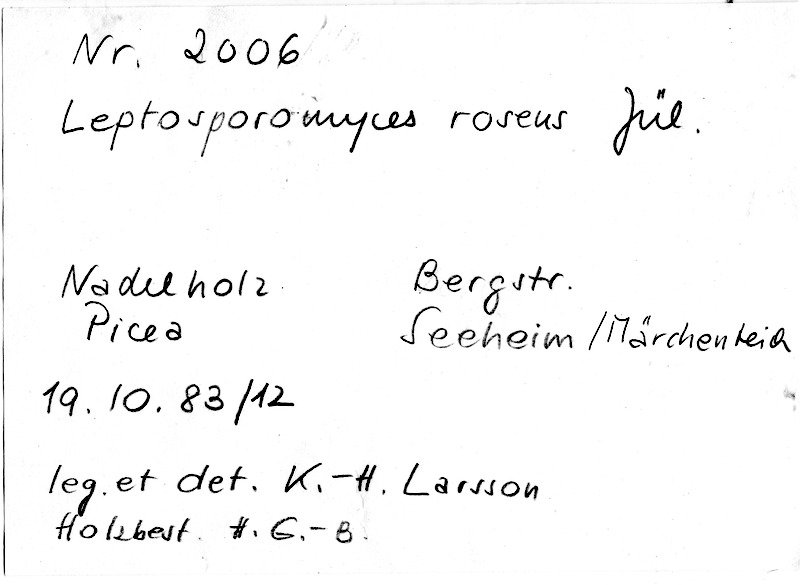 Nr. 2006
Leptosporomyces roseus Jül.
Nadelholz Bergstr.
Picea Seeheim/Märchenteich
19. 10. 83/12
leg. et det. K.-H. Larsson
Holzbest. H. G.-B.